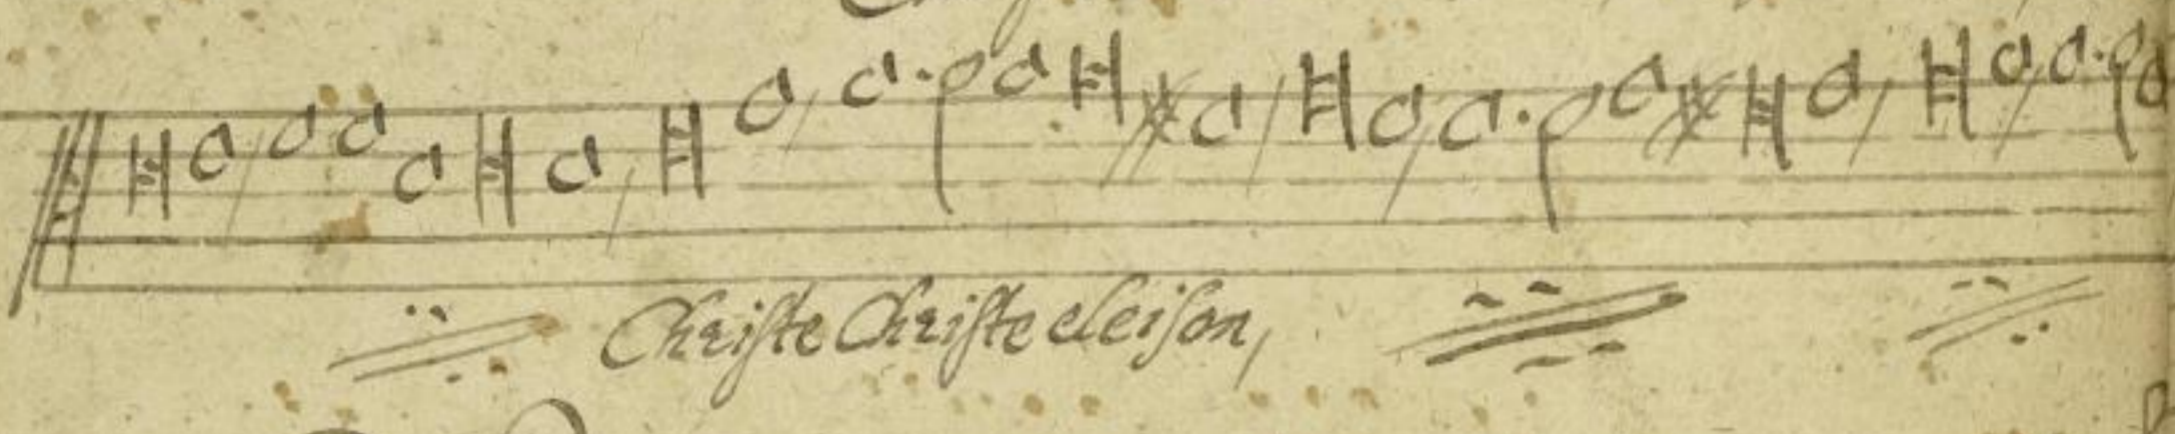 Christe Christe eleison,